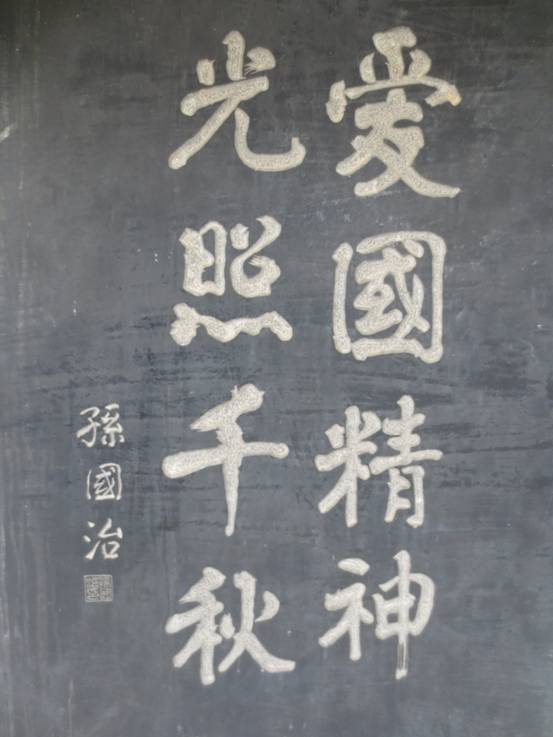 愛國精神
光照千秋
孫國治